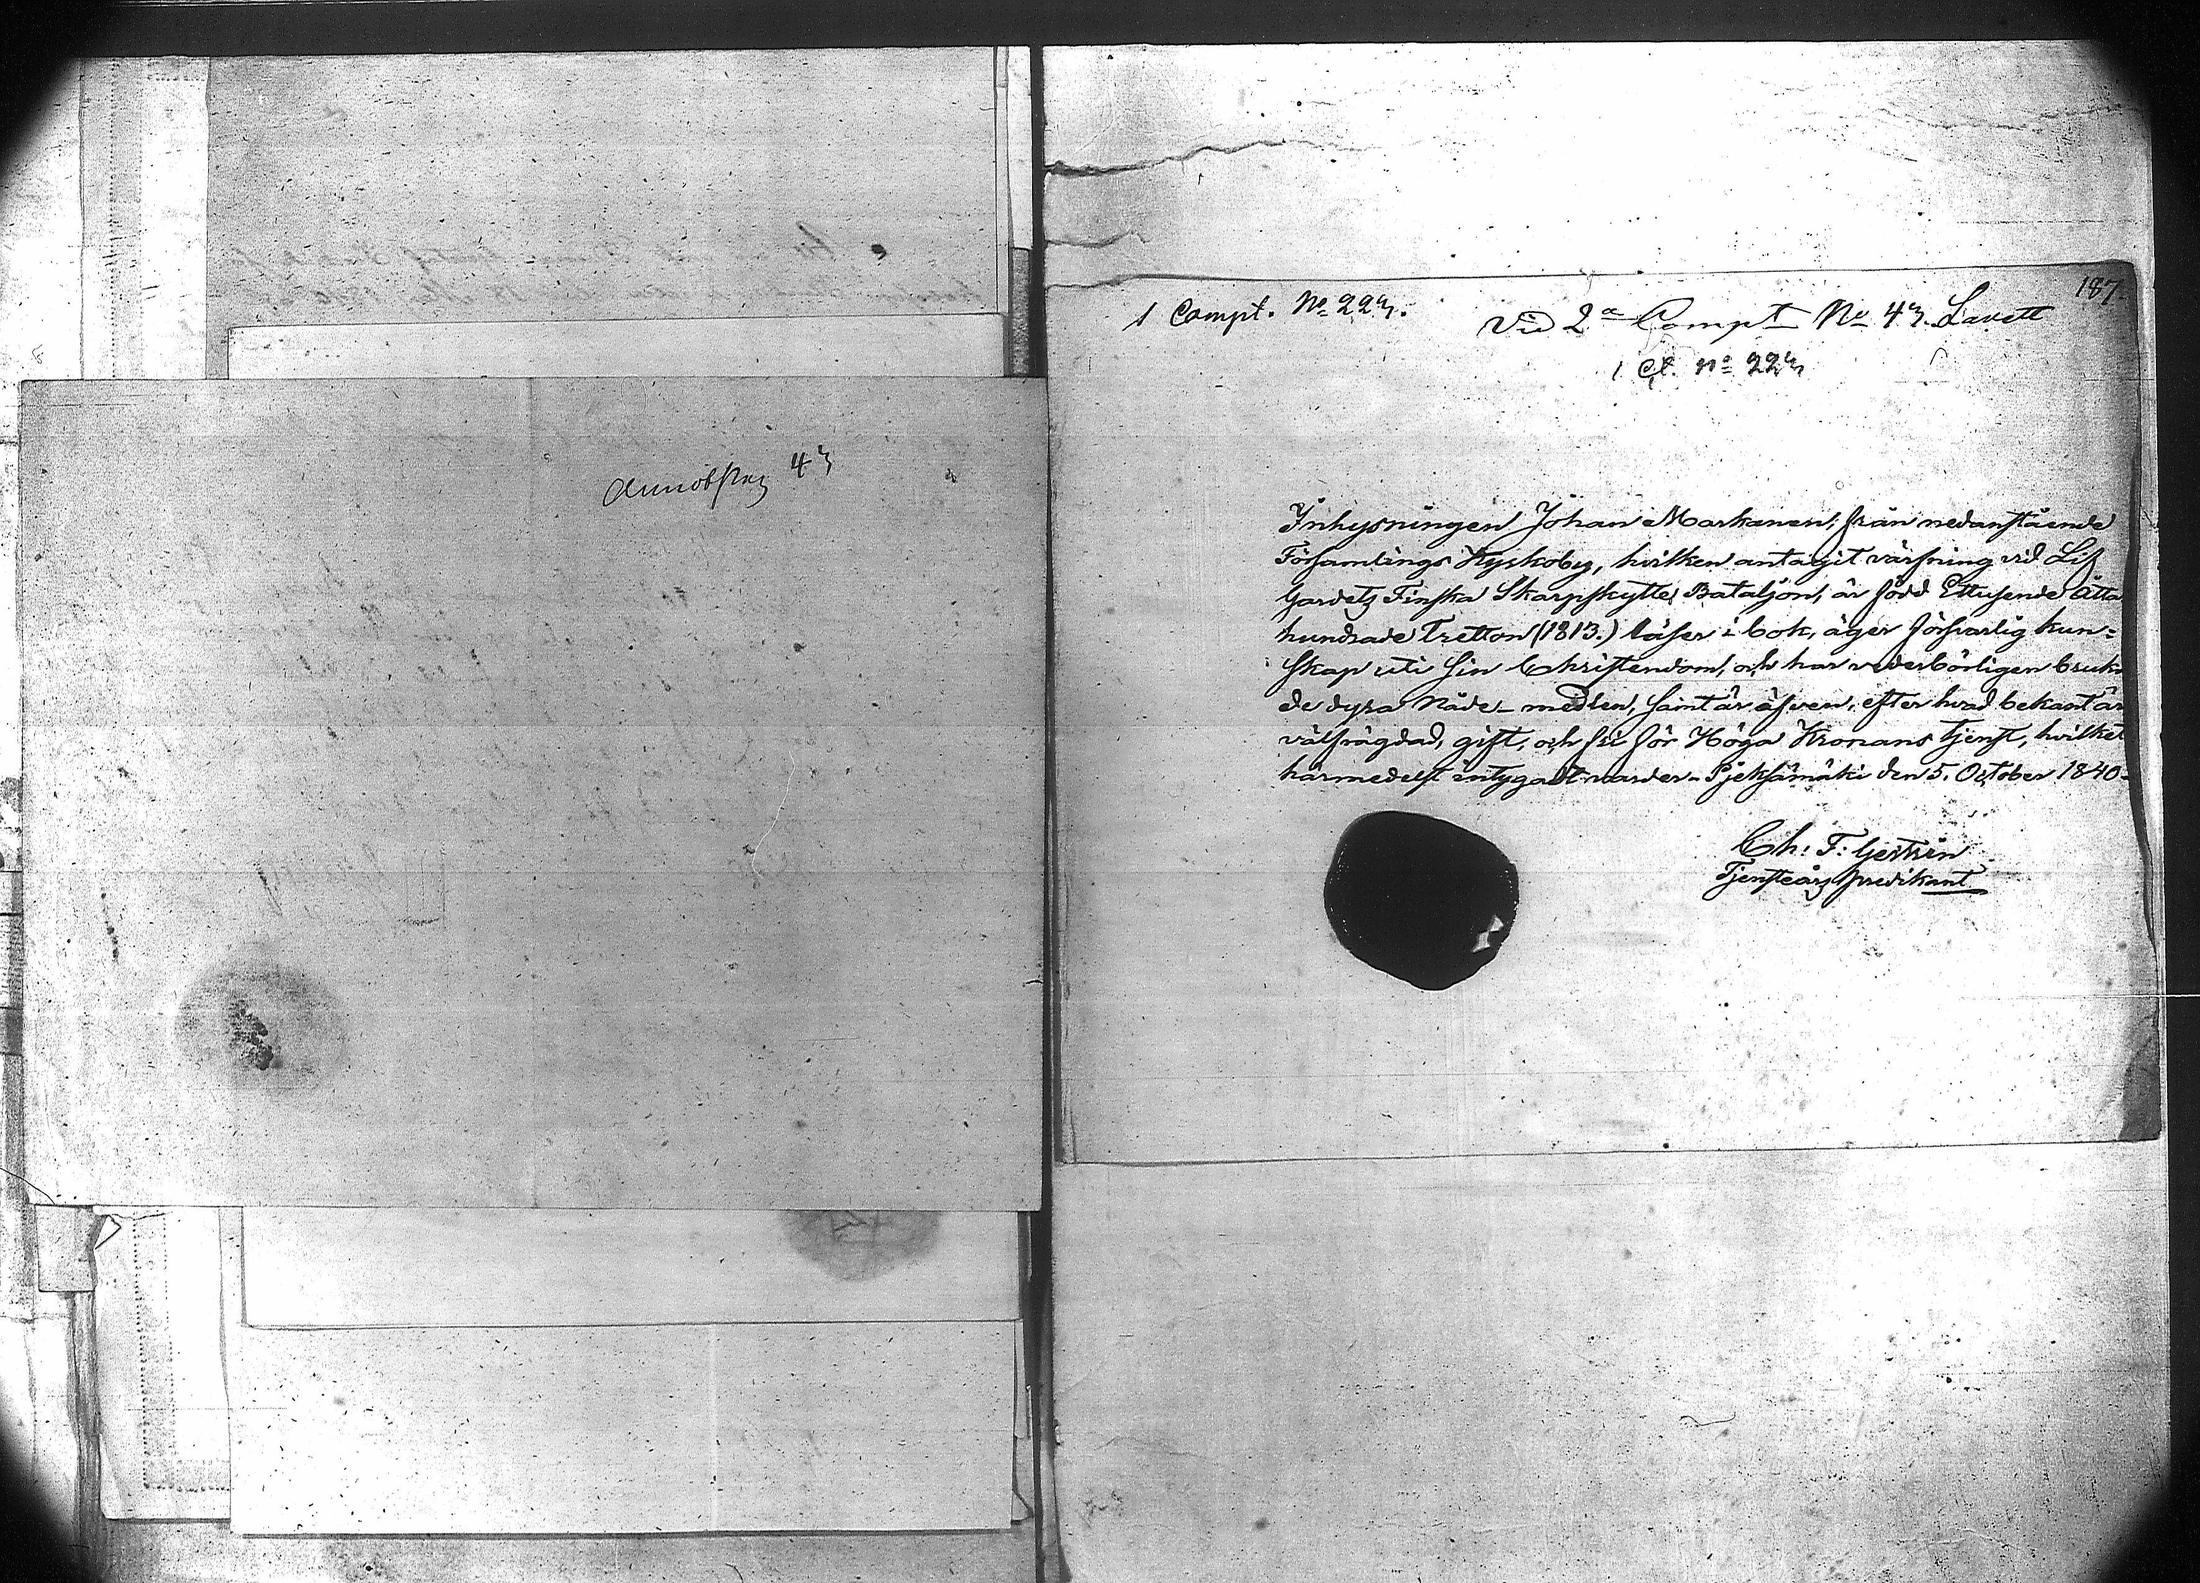 43
187.
1 Compt. No 224.
Vid 2a Compt No 43. Lavett
1 Ct. No 224
Inhysningen Johan Markanen, från nedanstående
Församlings Kyskoby, hvilken antagit värfning vid Lif
Gardets Finska Skarpskytte Bataljon, är född Ettusende Åtta
hundrade Tretton (1813.) läser i bok, äger försvarlig kun-
skap uti sin Christendom, och har vederbörligen bruka
de dyra Nåde-medlen, samt är äfven, efter hvad bekant är
välfrägdad, gift, och fri för Höga Kronans tjenst, hvilket
härmedelst intygadt warder. Pjeksämäki den 5. October 1840.
Ch: F:
Tjensteårs predikant